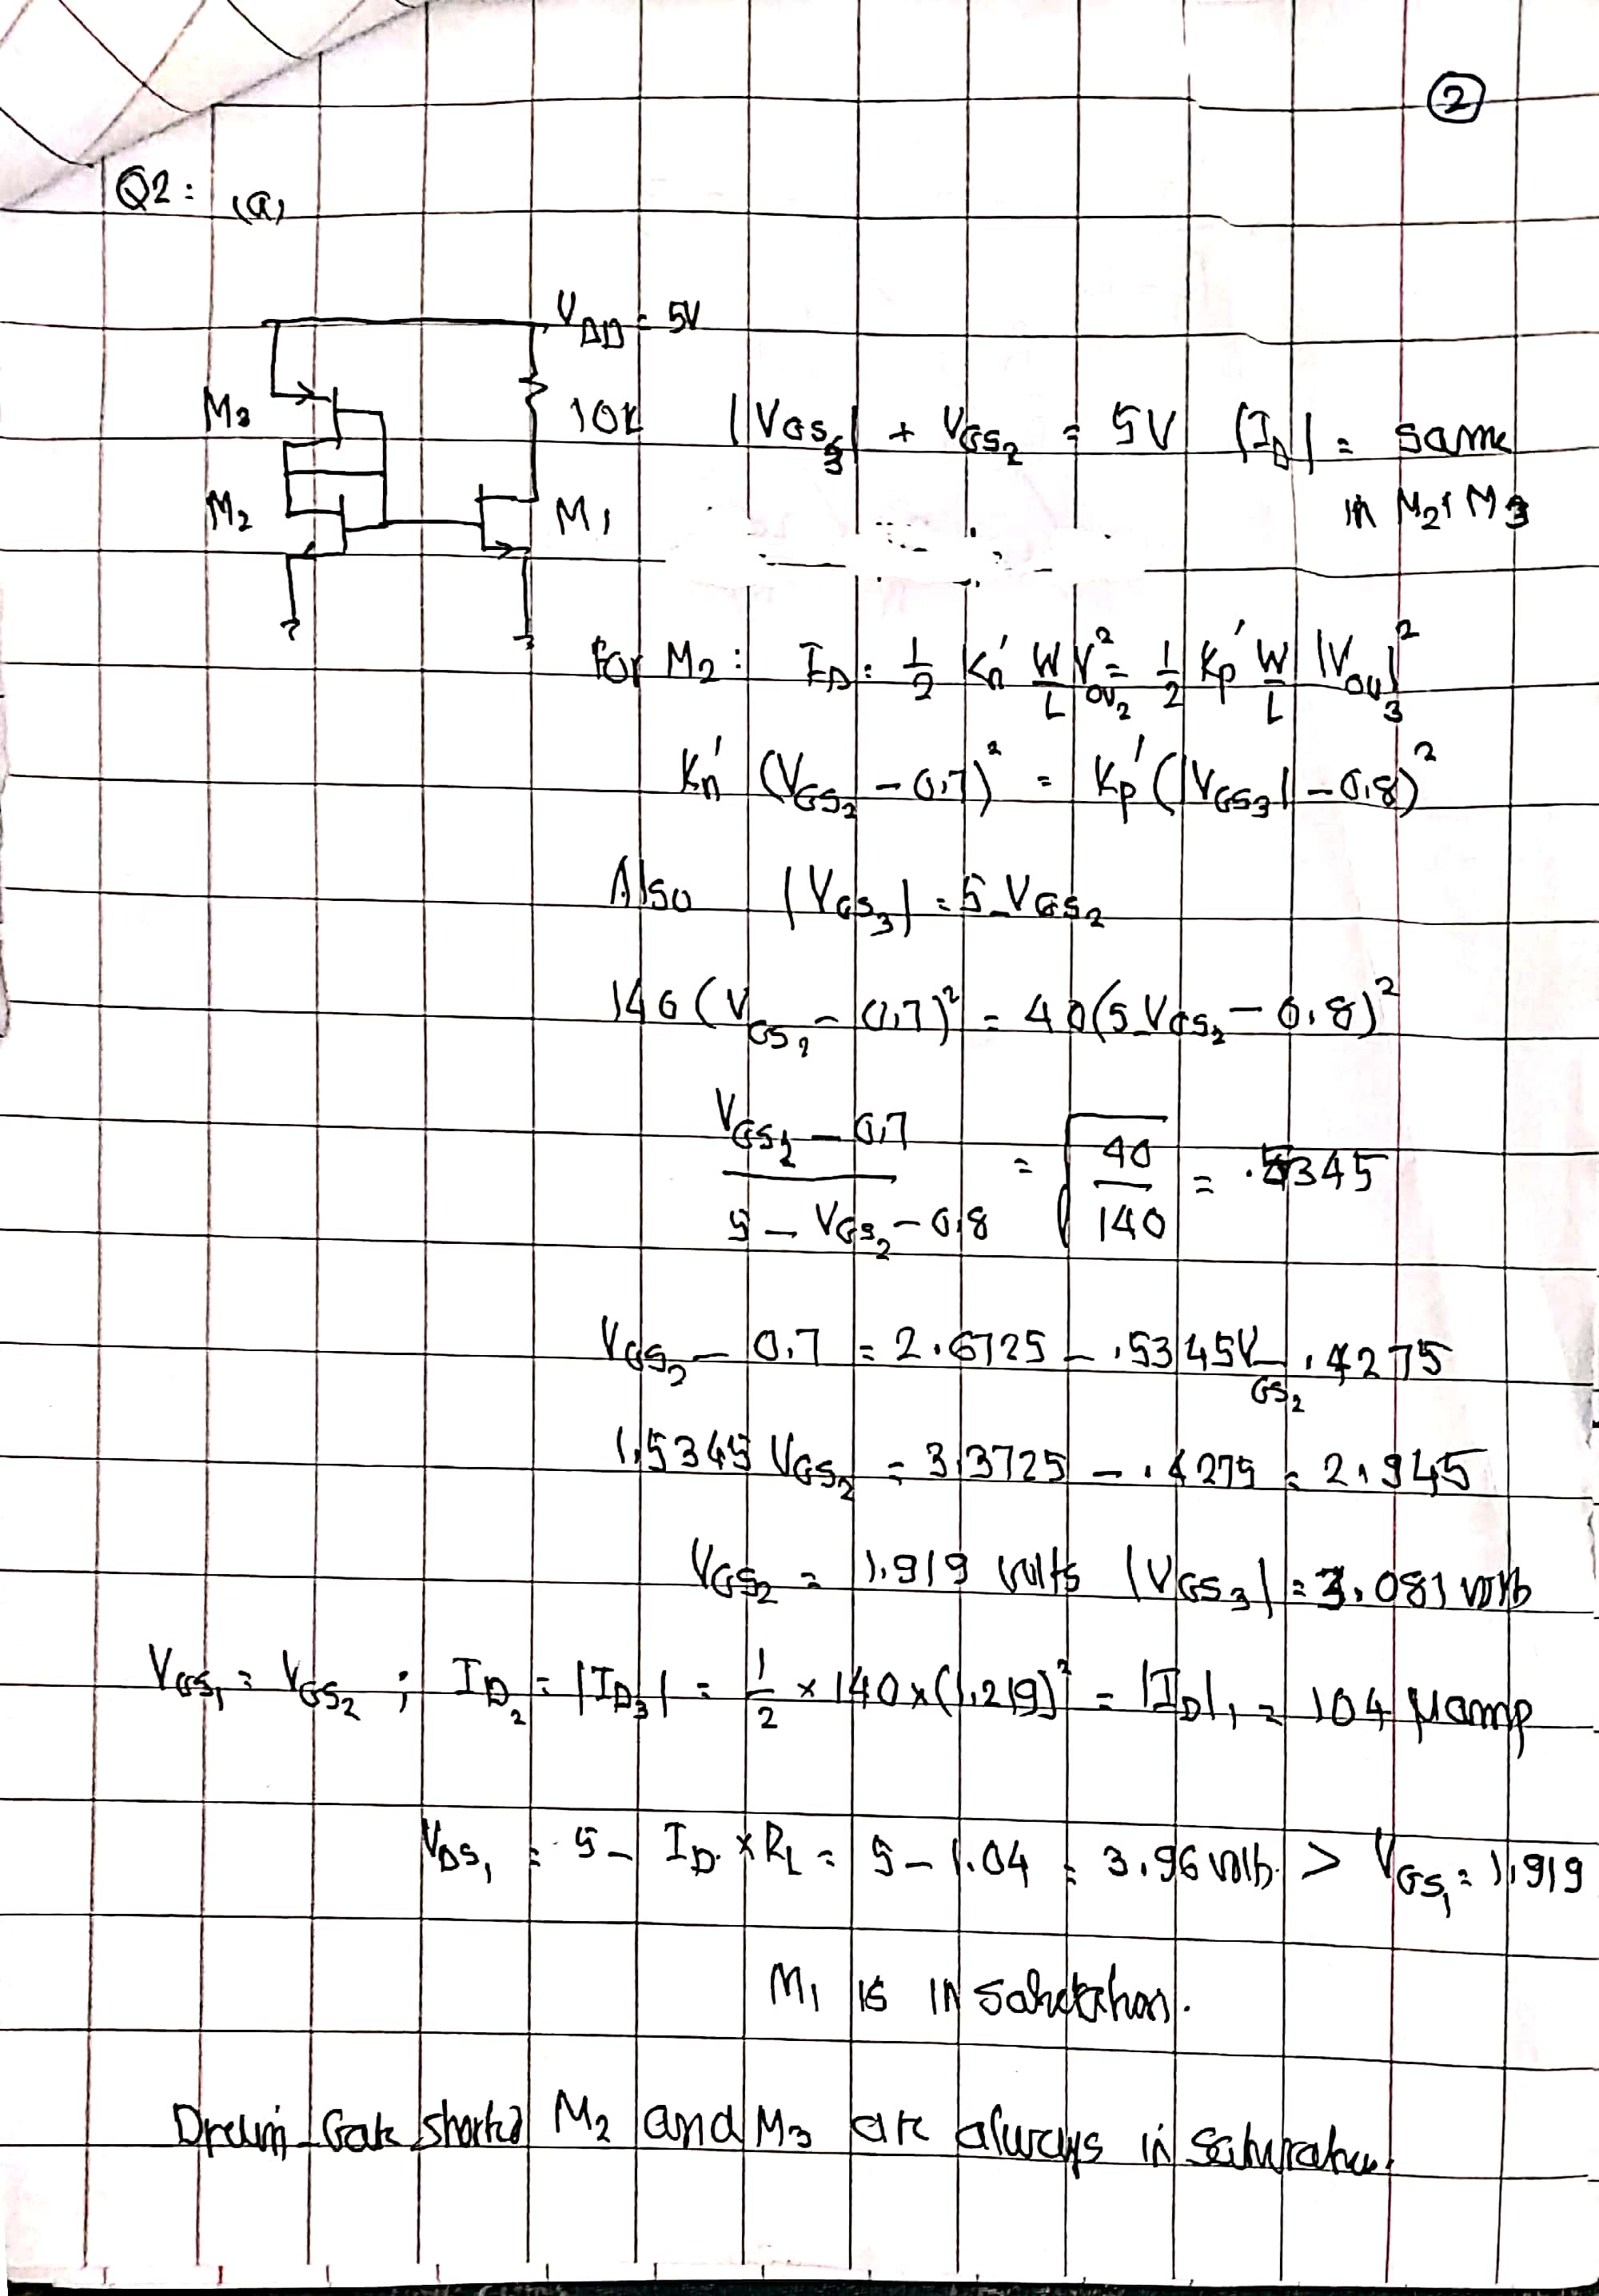 2
Q2: (a)
V_DD = 5V
M3
10K |V_GS3| + V_GS2 = 5V |I_D| = same
M2 M1 in M2, M3
For M2: I_D = 1/2 Kn' W/L V_OV2² = 1/2 Kp' W/L |V_OV|3²
Kn' (V_GS2 - 0.7)² = Kp' (|V_GS3| - 0.8)²
Also |V_GS3| = 5 - V_GS2
140 (V_GS2 - 0.7)² = 40 (5 - V_GS2 - 0.8)²
(V_GS2 - 0.7) / (5 - V_GS2 - 0.8) = √(40/140) = .5345
V_GS2 - 0.7 = 2.6725 - .5345 V_GS2 - .4275
1.5345 V_GS2 = 3.3725 - .4275 = 2.945
V_GS2 = 1.919 volts |V_GS3| = 3.081 volts
V_GS1 = V_GS2 ; I_D2 = |I_D3| = 1/2 × 140 × (1.219)² = |I_D|1 = 104 μamp
V_DS1 = 5 - I_D × R_L = 5 - 1.04 = 3.96 volts > V_GS1 = 1.919
M1 is in saturation.
Drain Gate shorted M2 and M3 are always in saturation.